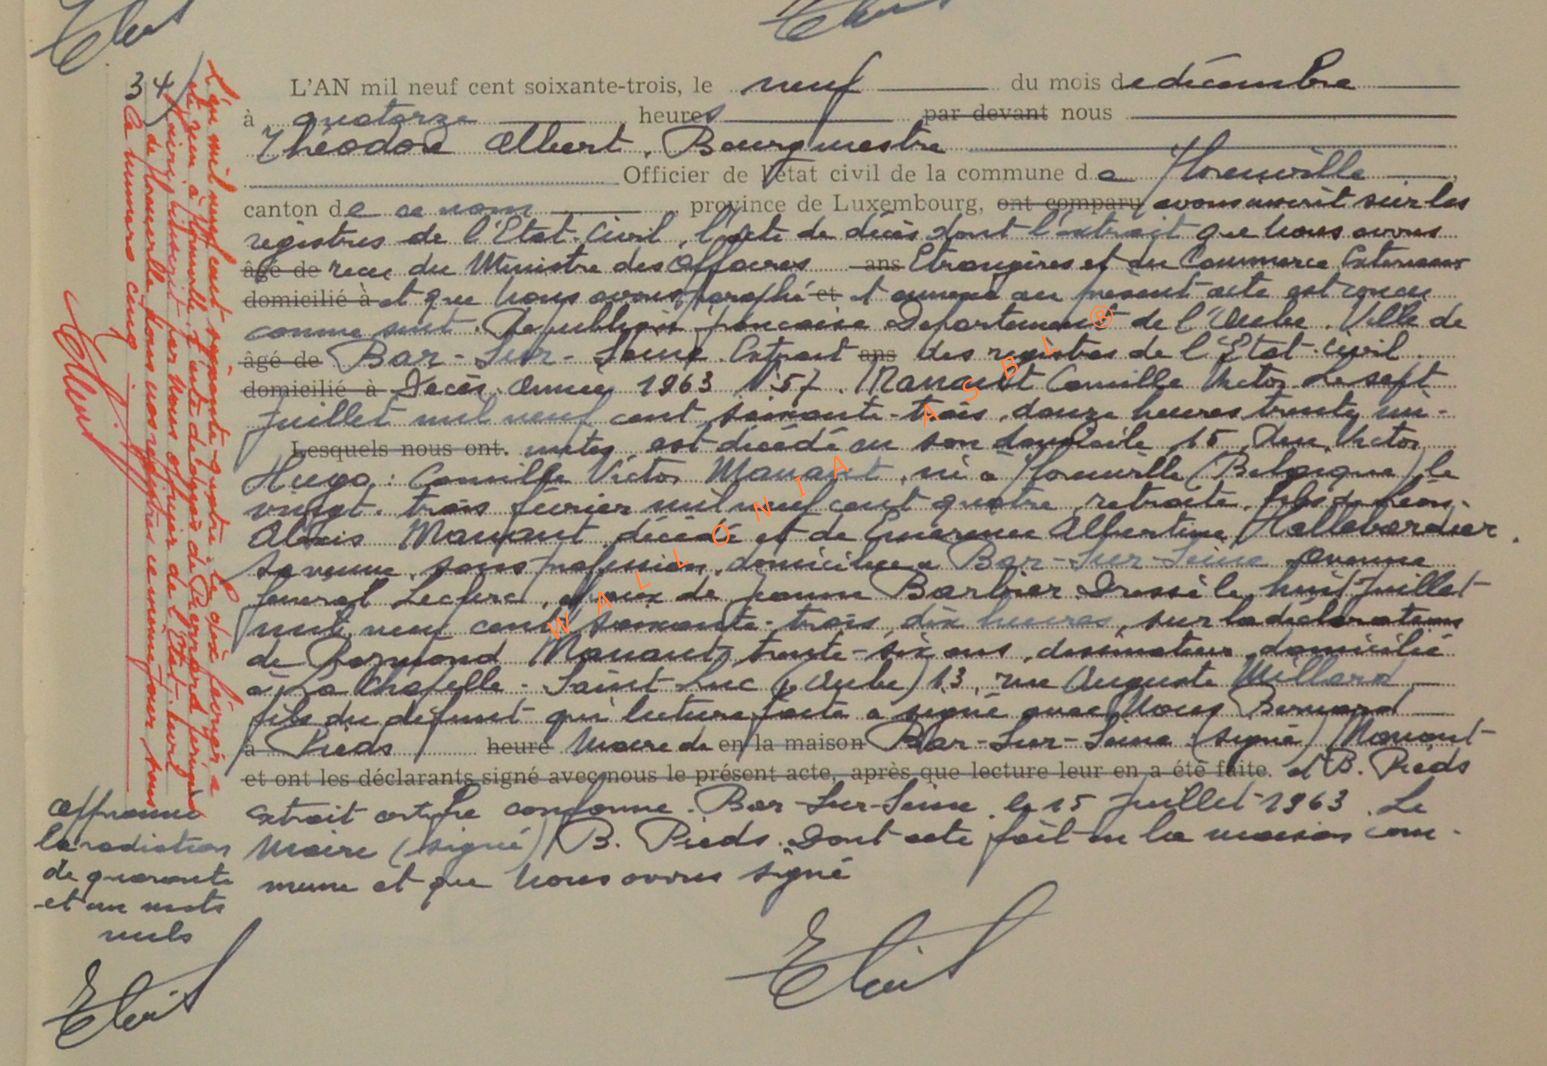 34
L'AN mil neuf cent soixante-trois, le neuf du mois de décembre
à quatorze heures par devant nous
Théodore Albert, Bourgmestre
Officier de l'état civil de la commune de
canton de ce nom, province de Luxembourg, ont comparu avons inscrit sur les
registres de l'Etat-Civil, l'acte de décès dont l'extrait que nous avons
âgé de reçu du Ministre des Affaires ans Etrangères et du Commerce Exterieur
domicilié à et que nous avons paraphé et et annexé au présent acte est conçu
comme suit. République française Département de l'Aube. Ville de
âgé de Bar-Sur-Seine. Extrait ans des registres de l'Etat-civil
domicilié à Décès. Année 1963 N° 57. Manant Camille Victor Le sept
Juillet mil neuf cent soixante-trois, douze heures trente mi-
Lesquels nous ont. nutes, est décédé en son domicile, 15, Victor
Hugo: Camille Victor Manant, né à (Belgique) le
vingt-trois février mil neuf cent quatre, retraité, fils de Léon-
Alexis Manant, décédé et de Albertine Hallebardier
sa veuve, sans profession, domiciliée à Bar-Sur-Seine avenue
General Leclerc, époux de Jeanne Barbier. Dressé le huit Juillet
mil neuf cent soixante-trois, dix heures, sur la déclaration
de Raymond Manant, trente-six ans, dessinateur, domicilié
à La Chapelle-Saint-Luc (Aube) 13, rue Auguste Millard
fils du défunt qui lecture faite a signé avec Nous Bernard
à Pieds heure Maire de en la maison Bar-Sur-Seine (signé) Manant
et ont les déclarants signé avec nous le présent acte, après que lecture leur en a été faite. et B. Pieds
extrait certifié conforme. Bar-Sur-Seine, le 15 Juillet 1963. Le
Maire (signé) B. Pieds. Dont acte fait en la maison com-
mune et que nous avons signé
L'an mil neuf cent soixante-quatre, le dix février, à
l'acte de décès de
inscrit par nous officier de l'Etat-civil
de nous nos registres ce même jour sous
le numero cinq
Approuvé
la radiation
de quarante
et un mots
nuls
WALLONIA ASBL ®